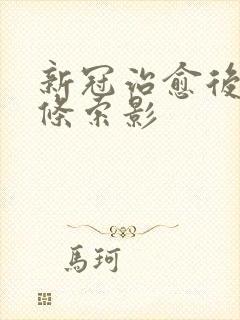 新冠治愈後
條索影
馬珂